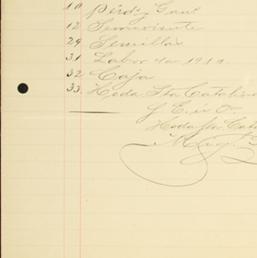 10 Pérd. y Gan
12 Semoviente
29 Semillas
31 Labor de 1910
32 Caja
33 Hcda. Sta. Catalina
S. E. ú O.
Hcda. Sta. Cata